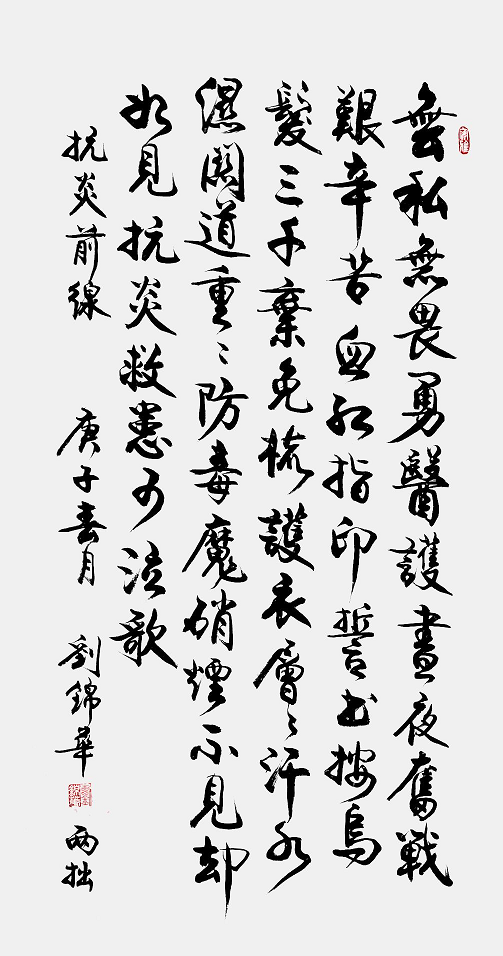 無私無畏勇醫護晝夜奮戰
艱辛苦血紅指印誓書按烏
髮三千棄免梳護衣層〻汗水
濕關道重〻防毒魔硝煙不見却
如見抗炎救患可泣歌
抗炎前線 庚子春月 劉錦華 兩拙